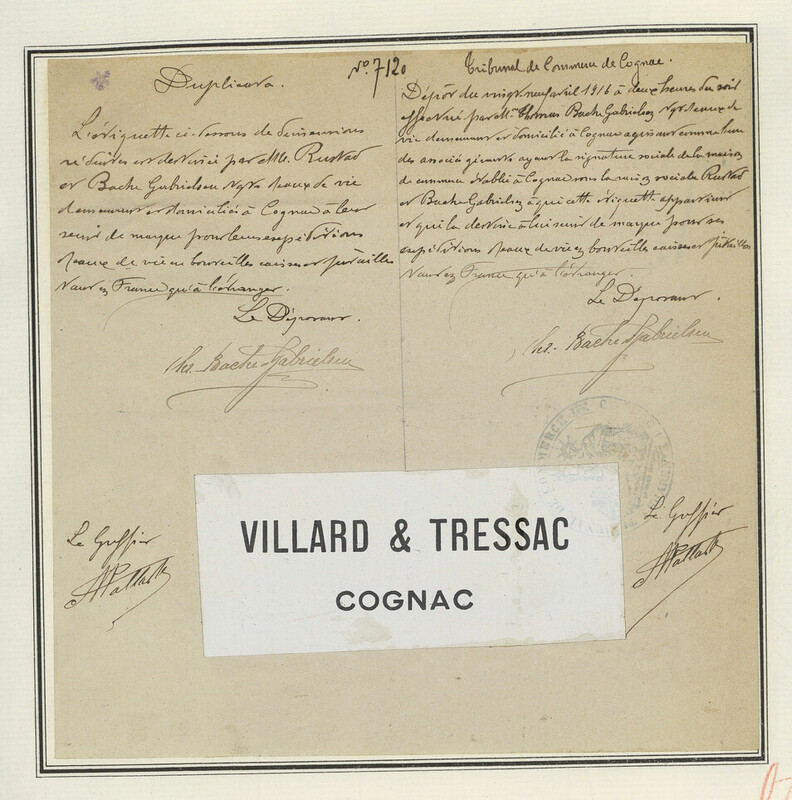 Duplicata.
L'étiquette ci-dessous de dimensions
réduites est destinée par MM. Rustad
et Bache Gabrielsen Ngts d'eaux de vie
demeurant et domiciliés à Cognac à leur
servir de marque pour leurs expéditions
d'eaux de vie en bouteilles caisses et futailles
tant en France qu'à l'étranger.
Le Déposant.
Ths. Bache-Gabrielsen
Le Greffier
No. 7120
Tribunal de Commerce de Cognac.
Dépôt du vingt neuf avril 1916 à deux heures du soir
effectué par Mr. Thomas Bache Gabrielsen Ngt d'eaux de
vie demeurant et domicilié à Cognac agissant comme l'un
des associés gérants ayant la signature sociale de la maison
de commerce établie à Cognac sous la raison sociale Rustad
et Bache Gabrielsen à qui cette étiquette appartient
et qui la destine à lui servir de marque pour ses
expéditions d'eaux de vie en bouteilles caisses et futailles
tant en France qu'à l'étranger.
Le Déposant.
Ths. Bache-Gabrielsen
Le Greffier
VILLARD & TRESSAC
COGNAC